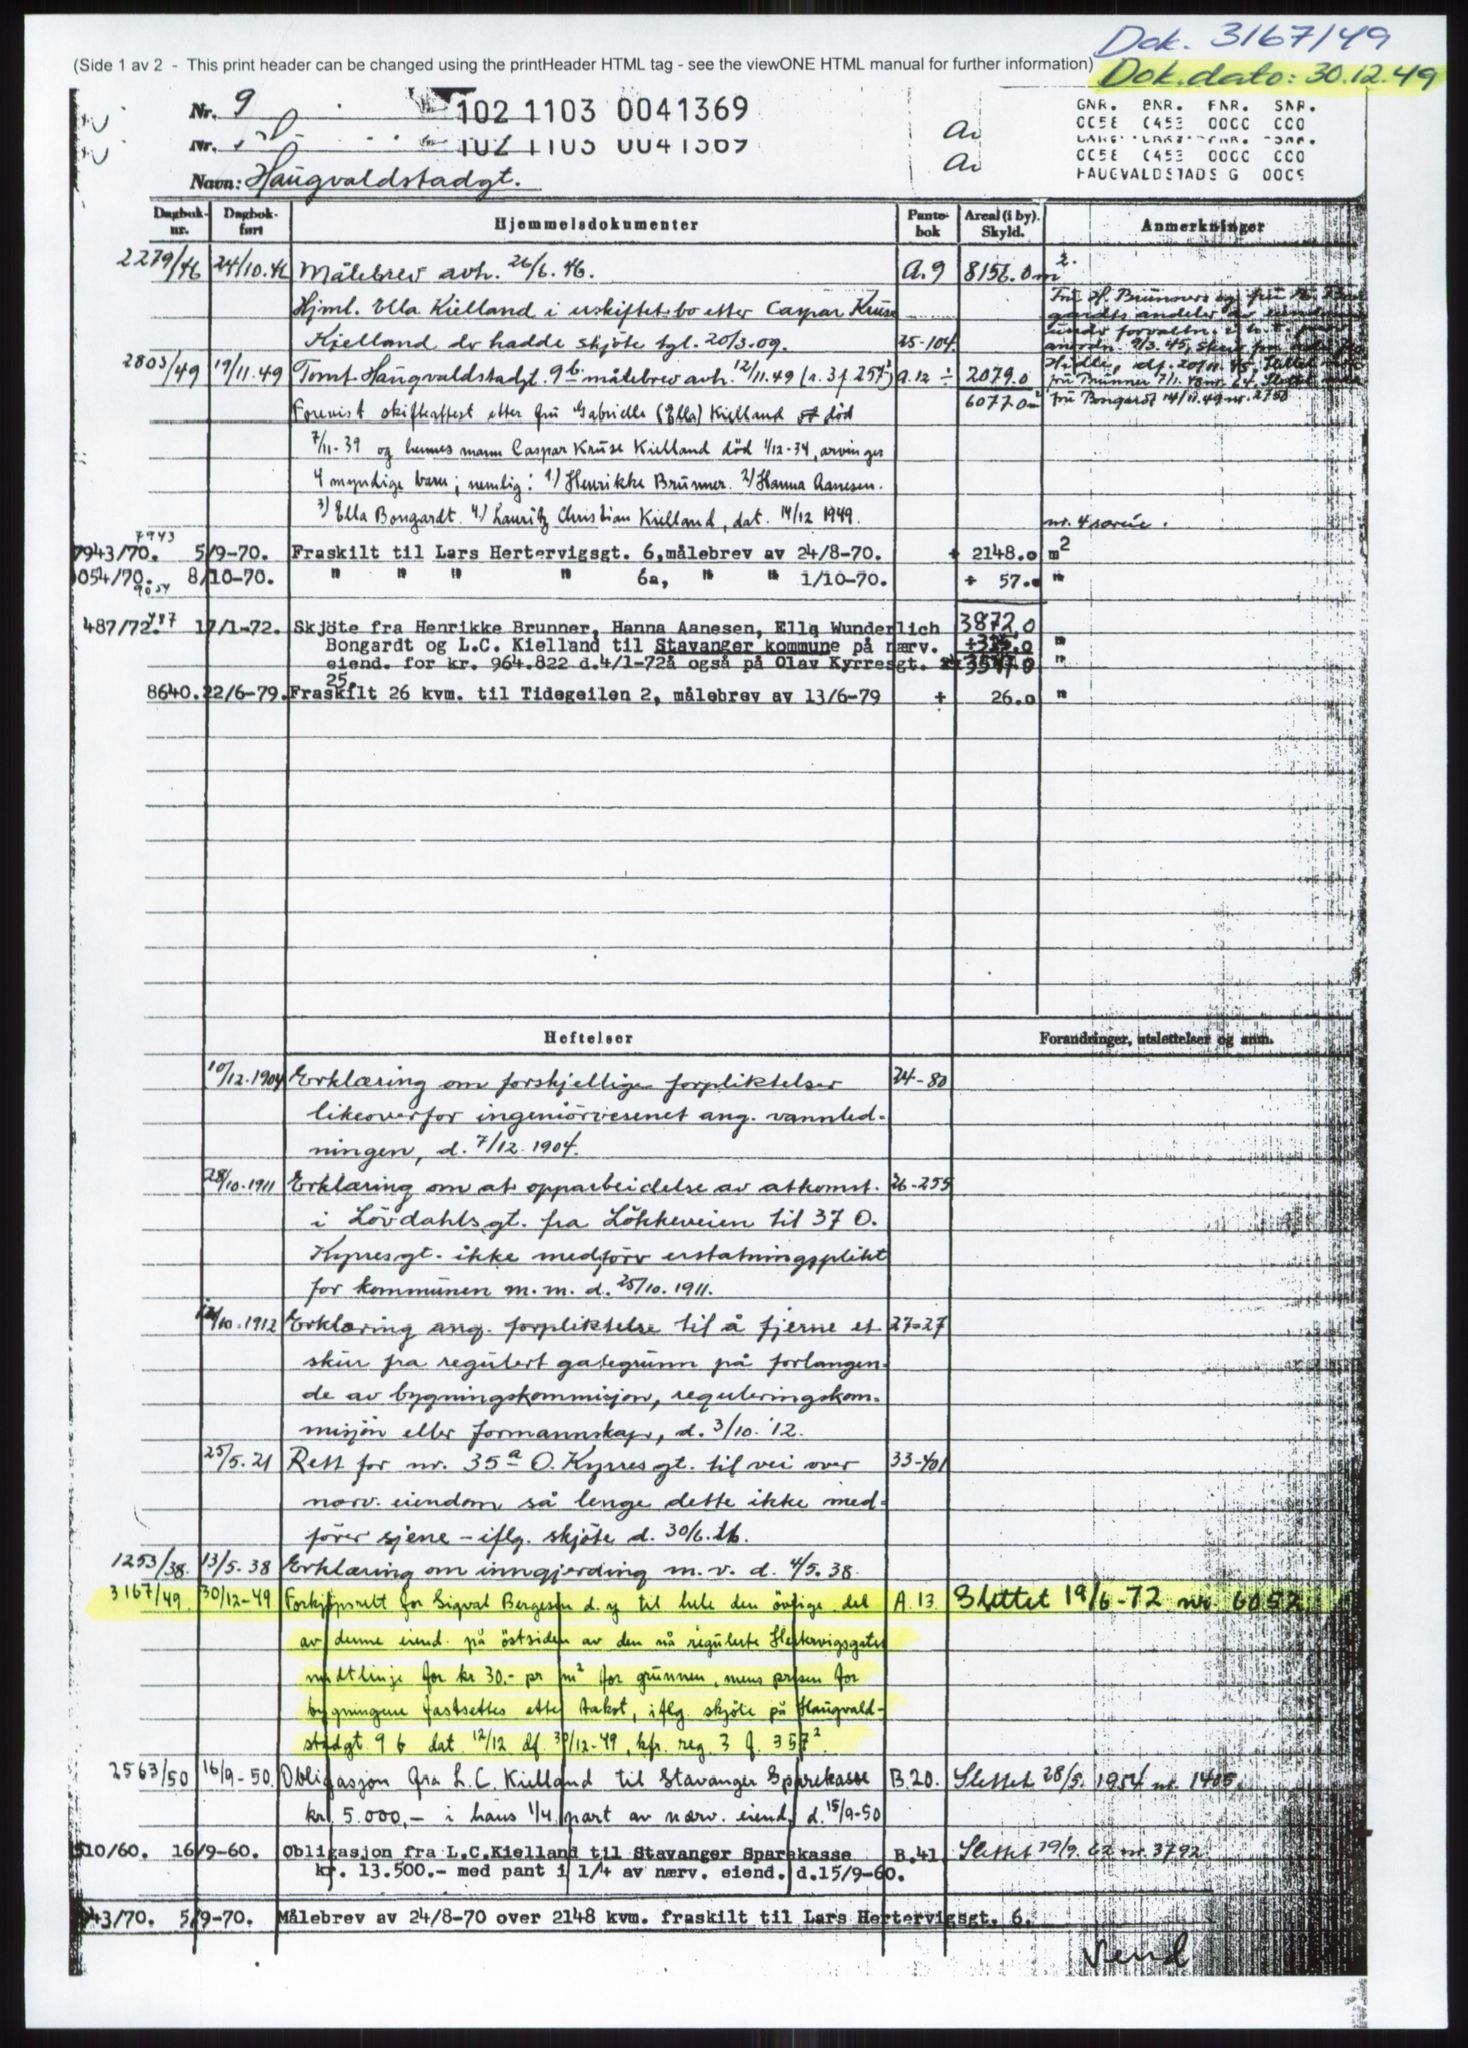 Dok. 3167/49
(Side 1 av 2 - This print header can be changed using the printHeader HTML tag - see the viewONE HTML manual for further information)
Dok.dato: 30.12.49
Nr. 9
102 1103 0041369
GNR. BNR. FNR. SNR.
0058 0453 0000 000
Nr.
102 1103 0041369
0058 0453 0000 000
HAUGVALDSTADS G 0009
Navn: Haugvaldstadgt.
Dagbok-nr. Dagbok-ført Hjemmelsdokumenter Pante-bok Areal (i by). Skyld. Anmerkninger
2279/46 24/10.46 Målebrev avh. 26/6.46. A.9 8156.0 m2.
Hjml. Ella Kielland i uskiftet bo etter Caspar Kruse
Kielland dr hadde skjöte tgl. 20/3.09. 25-104
2803/49 19/11.49 Tomt Haugvaldstadgt 9b målebrev avh. 12/11.49 (r.3 f.257²) A.12 ÷ 2079.0
6077.0
Forevist skifteattest etter fru Gabrielle (Ella) Kielland död
7/11-39 og hennes mann Caspar Kruse Kielland död 1/12-34, arvinger
4 myndige barn; nemlig: 1) Henrikke Brunner. 2) Hanna Aanesen.
3) Ella Bongardt. 4) Lauritz Christian Kielland, dat. 14/12 1949.
7943
7943/70. 5/9-70. Fraskilt til Lars Hertervigsgt. 6, målebrev av 24/8-70. ÷ 2148.0 m2
054/70. 8/10-70. " " " " 6a, " " 1/10-70. ÷ 57.0 "
9054
487/72. 487 17/1-72. Skjöte fra Henrikke Brunner, Hanna Aanesen, Ella Wunderlich 3872.0
Bongardt og L.C. Kielland til Stavanger kommune på nærv. "
eiend. for kr. 964.822 d.4/1-72å også på Olav Kyrresgt. "
25.
8640. 22/6-79. Fraskilt 26 kvm. til Tidegeilen 2, målebrev av 13/6-79 ÷ 26.0 "
Heftelser Forandringer, utslettelser og anm.
10/12.1904 Erklæring om forskjellige forpliktelser 24-80
likeoverfor ingeniörvesenet ang. vannled-
ningen, d. 7/12.1904.
28/10.1911 Erklæring om at opparbeidelse av atkomst 26-255
i Lövdahlsgt. fra Lökkeveien til 37 O.
Kyrresgt. ikke medförer erstatningsplikt
for kommunen m.m. d. 25/10.1911.
/10.1912 Erklæring ang. forpliktelse til å fjerne et 27-27
skur fra regulert gategrunn på forlangen-
de av bygningskommisjon, reguleringskom-
misjon eller formannskap, d. 3/10.'12.
25/5.21 Rett for nr. 35a O. Kyrresgt. til vei over 33-401
nærv. eiendom så lenge dette ikke med-
förer sjene - iflg. skjöte d. 30/6.16.
1253/38. 13/5.38 Erklæring om inngjerding m.v. d. 4/5.38.
3167/49 30/12-49 Forkjøpsrett for Sigval Bergesen d.y til hele den övrige del A.13 Slettet 19/6-72 nr. 6052
av denne eiend. på östsiden av den nå regulerte Hertervigsgates
midtlinje for kr 30,- pr m2 for grunnen, mens prisen for
bygningene fastsettes etter takst, iflg. skjöte på Haugvald-
stadgt. 9 b dat. 12/12 df. 30/12-49, kfr. reg. 3 f. 357²
2563/50 16/9-50 Obligasjon fra L.C. Kielland til Stavanger Sparekasse B.20. Slettet 28/5.1954 nr. 1405.
kr 5.000,- i hans 1/4 part av nærv. eiend. d. 15/9-50
510/60. 16/9-60. Obligasjon fra L.C.Kielland til Stavanger Sparekasse B.41 Slettet 19/9.62 nr. 3792.
kr. 13.500.- med pant i 1/4 av nærv. eiend. d.15/9-60.
43/70. 5/9-70. Målebrev av 24/8-70 over 2148 kvm. fraskilt til Lars Hertervigsgt. 6.
Vend